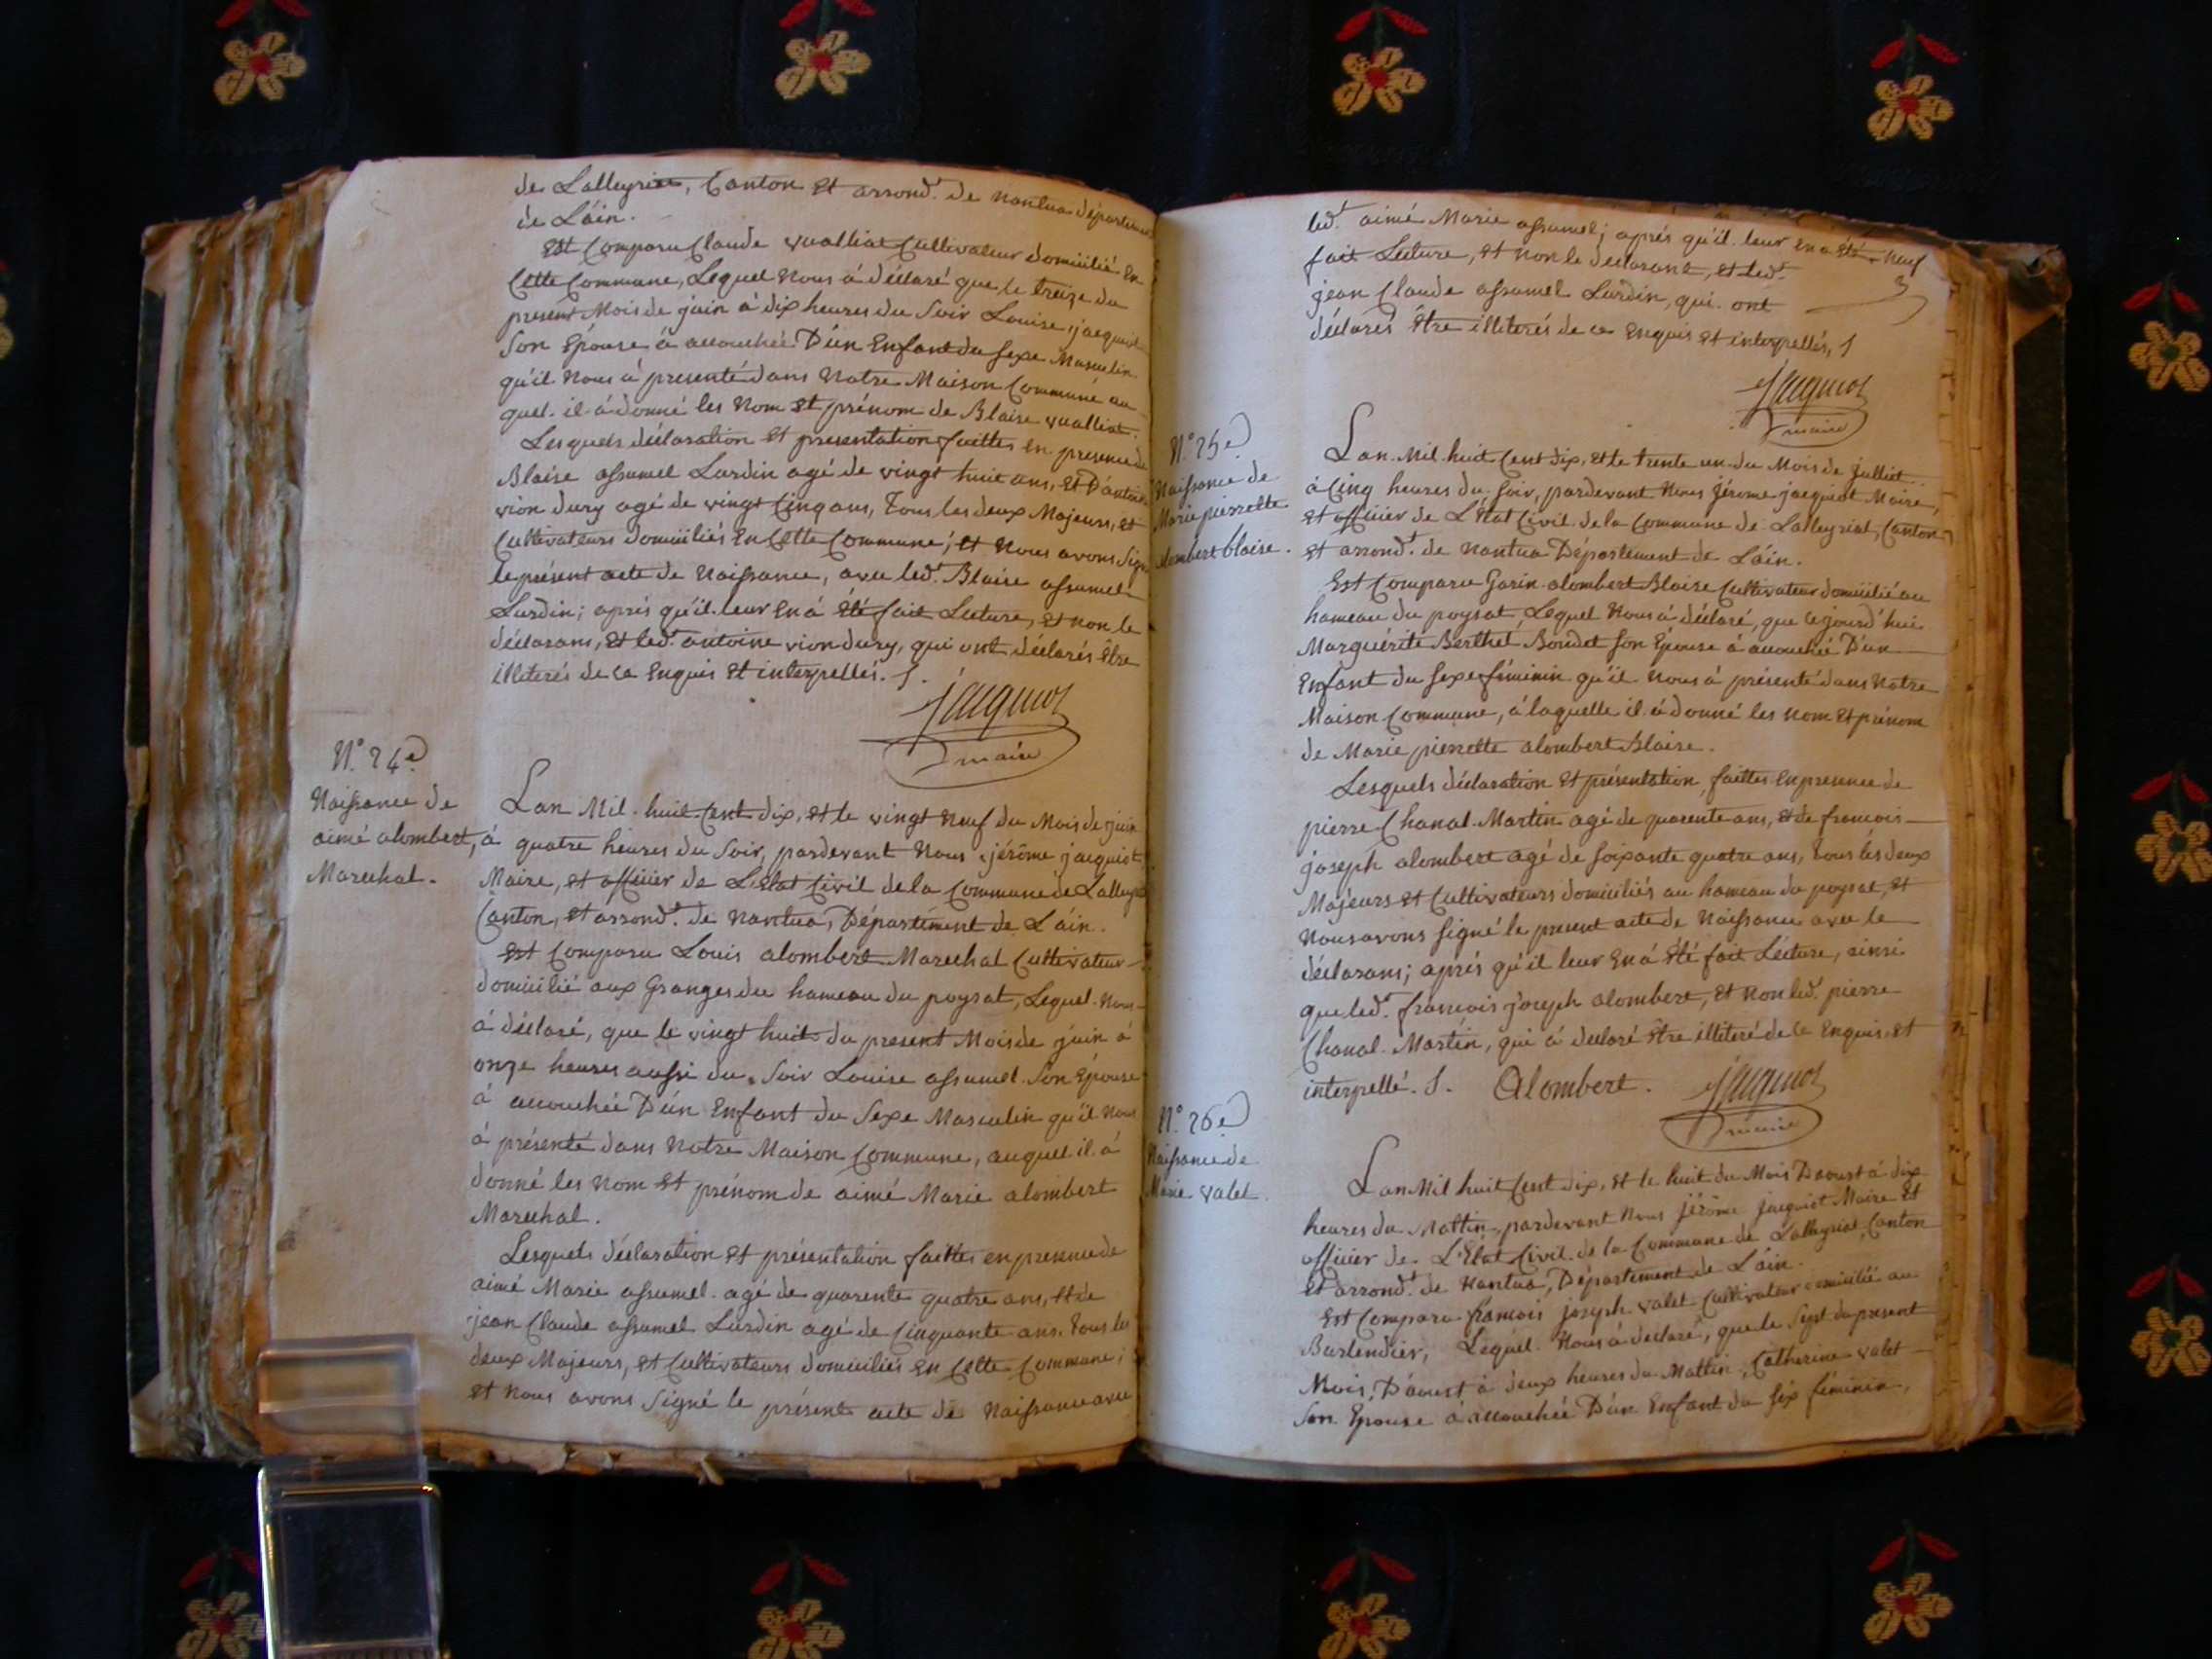 de Lalleyriat, Canton et arrond.t de nantua départem
de Láin.
Est Comparu Claude vualliat Cultivateur domicilié en
Cette Commune, Lequel Nous á déclaré que le treize du
present Mois de juin á dix heures du Soir Louise jacquiot
Son Epouse á accouchée D'ún Enfant du sexe Masculin
qu'il Nous á presenté dans Notre Maison Commune au
quel il á donné les Nom et prénom de Blaise vualliat.
Lesquels déclaration et presentation faittes en presence de
Blaise assumel Lurdin agé de vingt huit ans, et D'antoine
vion dury agé de vingt Cinq ans, Tous les deux Majeurs, et
Cultivateurs domiciliés En Cette Commune; et Nous avons Signé
le présent acte de Naissance, avec led.t Blaise assumel
Lurdin; aprés qu'il leur En á été fait Lecture, et non le
déclarans, et led.t antoine vion dury, qui ont déclarés être
illiterés de ce Enquis et interpellés. /.
jacquiot
maire
N.o 24.e
Naissance de
aimé alombert,
Marechal.
Lan Mil huit Cent dix, et le vingt Neuf du Mois de juin
á quatre heures du Soir, pardevant Nous jérôme jacquiot
Maire, et officier de L'Etat Civil de la Commune de Lalleyriat
Canton, et arrond.t de Nantua, Département de Láin.
Est Comparu Louis alombert Marechal Cultivateur
domicilié aux Granges du hameau du poysat, Lequel Nous
á déclaré, que le vingt huit du present Mois de juin á
onze heures aussi du Soir Louise assumel Son Epouse
á accouchée D'ún Enfant du Sexe Masculin qu'il Nous
á présenté dans Notre Maison Commune, auquel il á
donné les Nom et prénom de aimé Marie alombert
Marechal.
Lesquels déclaration et présentation faittes en presence de
aimé Marie assumel agé de quarente quatre ans, et de
jean Claude assumel Lurdin agé de Cinquante ans. Tous les
deux Majeurs, et Cultivateurs domiciliés en Cette Commune;
et Nous avons Signé le présent acte de Naissance avec
led.t aimé Marie assumel; aprés qu'il leur en a été Neuf
fait Lecture, et non le declarant, et led.t
jean Claude assumel Lurdin, qui ont
déclarés être illiterés de ce Enquis et interpellés, /
jacquiot
maire
N.o 25.e
Naissance de
Marie pierrette
alombert blaise.
Lan Mil huit Cent dix, et le trente un du Mois de julliet
á Cinq heures du Soir, pardevant Nous jérome jacquiot Maire,
et officier de L'Etat Civil de la Commune de Lalleyriat, Canton
et arrond.t de Nantua Département de Láin.
Est Comparu Garin alombert Blaise Cultivateur domicilié au
hameau du poysat, Lequel Nous á déclaré, que Cejourd'hui
Marguérite Berthet Bondet Son Epouse á accouchée D'ún
Enfant du Sexe féminin qu'il Nous á présenté dans Notre
Maison Commune, á laquelle il á donné les nom et prénom
de Marie pierrette alombert Blaise.
Lesquels déclaration et présentation, faittes en presence de
pierre Chanal Martin agé de quarente ans, et de francois
joseph alombert agé de soixante quatre ans, Tous les deux
Majeurs et Cultivateurs domiciliés au hameau du poysat, et
Nous avons signé le present acte de Naissance avec le
déclarans; aprés qu'il leur En á été fait Lécture, ainsi
que led.t francois joseph alombert, et Non led.t pierre
Chanal Martin, qui á declaré être illiteré de ce Enquis, et
interpellé. /. Alombert. jacquiot
maire
N.o 26.e
Naissance de
Marie valet.
Lan Mil huit Cent dix, et le huit du Mois D'aoust á dix
heures du Mattin, pardevant Nous jérôme jacquiot Maire et
officier de L'Etat Civil de la Commune de Lalleyriat, Canton
et arrond.t de Nantua, Département de Láin.
Est Comparu francois joseph valet Cultivateur domicilié au
Burlendier, Lequel Nous á declaré, que le Sept du present
Mois, D'aoust á deux heures du Mattin, Catherine valet
Son Epouse á accouchée D'ún Enfant du Séx féminin,